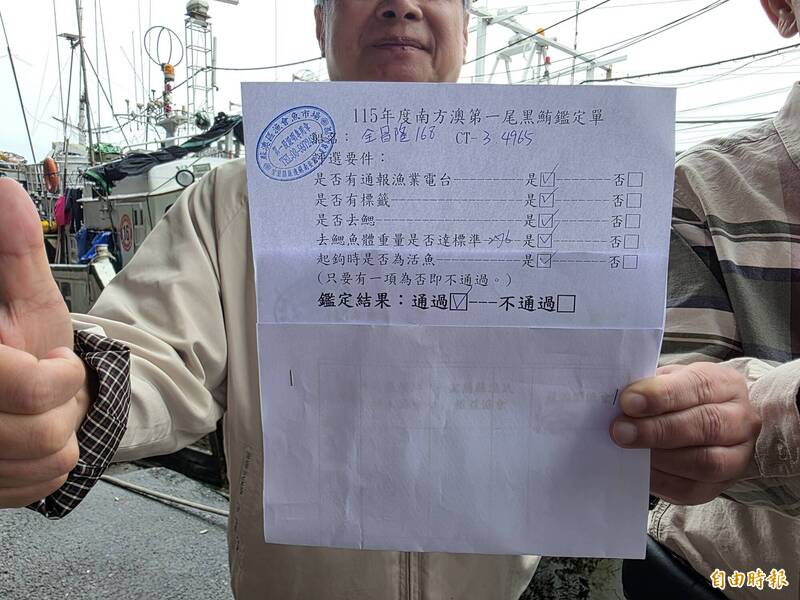 115年度南方澳第一尾黑鮪鑑定單
船名: 全昌隆168 CT-3 4965
評選要件:
是否有通報漁業電台----------是☑--------否□
是否有標籤------------------是☑--------否□
是否去鰓--------------------是☑--------否□
去鰓魚體重量是否達標準→276 是☑--------否□
起鉤時是否為活魚------------是☑--------否□
(只要有一項為否即不通過。)
鑑定結果:通過☑---不通過□
自由時報